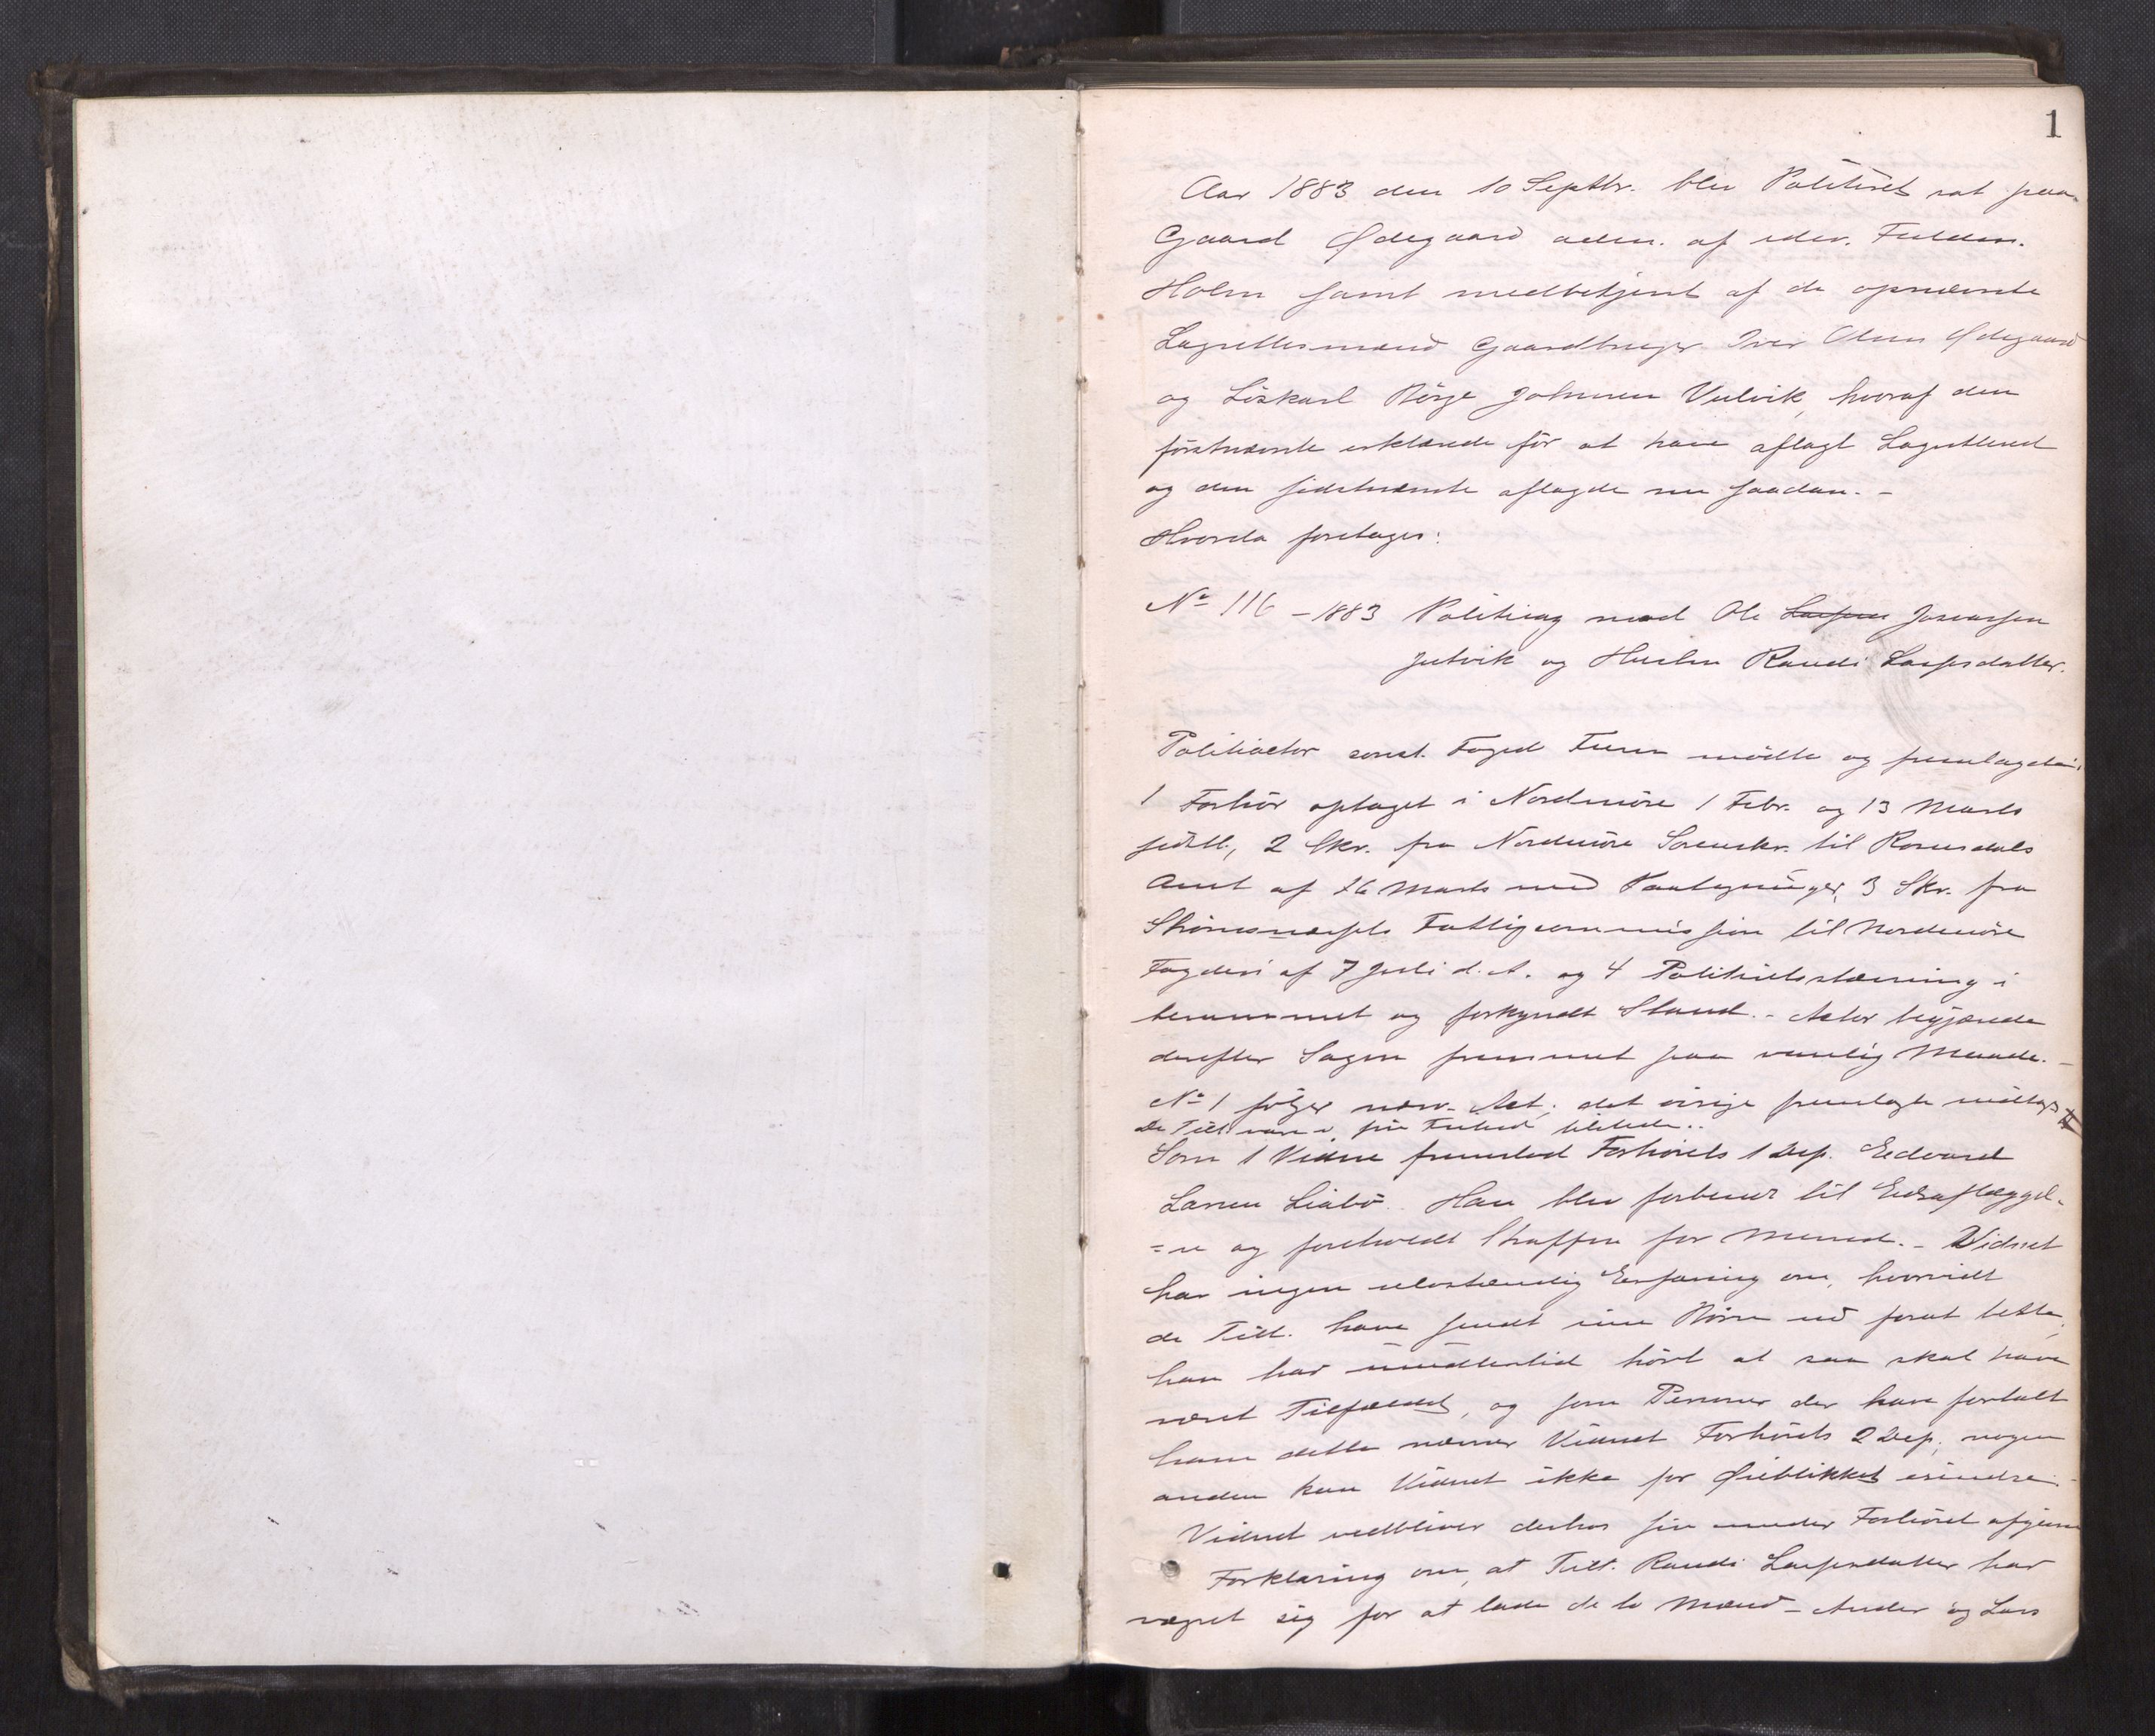 1
Aar 1883 den 10 Septbr. blev Politiret sat paa
Gaard Ødegaard adm. af edsv. Fuldm.
Holm samt medbetjent af de opnævnte
Lagrettesmænd Gaardbruger Iver Olsen Ødegaard
og Löskarl Börge Johnsen Vulvik, hvoraf den
förstnævnte erklærede för at have aflagt Lagretteed
og den sidstnævnte aflagde nu saadan. -
Hvorda foretages:
No 116 - 1883 Politisag mod Ole Larsen Jonassen
Jutvik og Hustru Randi Larsdatter.
Politiactor const. Foged Furu mödte og fremlagde:
1 Forhör optaget i Nordmöre 1 Febr. og 13 Marts
sidstl., 2 Skr. fra Nordmöre Sorenskr. til Romsdals
Amt af 26 Marts med Paategninger, 3 Skr. fra
Strömsnæssets Fattigcommission til Nordmöre
Fogderi af 7 Juli d. A. og 4 Politiretsstævning i
berammet og forkyndt Stand. - Actor begjærede
derefter Sagen fremmet paa vanlig Maade. -
No 1 fölger nærv. Act; det övrige fremlagte indtages
De Tilt. vare i sin Frihed tilstede..
Som 1 Vidne fremstod Forhörets 1 Dep. Edvard
Larsen Liabö. Han blev forberedt til Edsaflæggel-
=se og foreholdt Straffen for Mened. - Vidnet
har ingen selvstændig Erfaring om, hvorvidt
de Tilt. have sendt sine Börn ud forat betle,
han har imidlertid hört at saa skal have
været Tilfældet, og som Personer der have fortalt
ham dette nævner Vidnet Forhörets 2 Dep.; nogen
anden kan Vidnet ikke for Øieblikket erindre. -
Vidnet vedbliver derhos sin under Forhöret afgivne
Forklaring om, at Tilt. Randi Larsdatter har
vægret sig for at lade de to Mænd - Anders og Lars